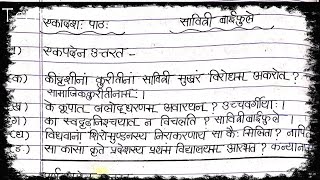 एकादशः पाठः सावित्री बाई फुले
एकपदेन उत्तरत -
क) कीदृशीनां कुरीतीनां सावित्री मुखरं विरोधम् अकरोत् ?
सामाजिककुरीतीनाम् ।
ख) के कूपात् जलोद्धरणम् अवारयन् ? उच्चवर्गीयाः ।
ग) का स्वदृढनिश्चयात् न विचलति ? सावित्रीबाईफुले
घ) विधवानां शिरोमुण्डनस्य निराकरणाय सा कैः मिलिता ? नापि
ङ) सा कासां कृते प्रदेशस्य प्रथमं विद्यालयम् आरभत ? कन्यान